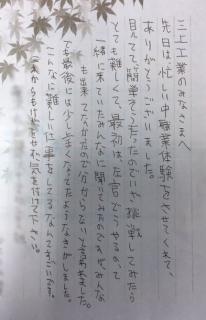 三土工業のみなさまへ
先日は、忙しい中職業体験をさせてくれて、
ありがとうございました。
見てて、簡単そうだったのでいざ、挑戦してみたら
とても難しくて、最初は、左官どうやるのって
一緒に来ていたみんなに聞いてみたのですが、みんな
も出来てなかたので分からないと言われました。
でも最後には少しうまくなってたようなきがしました。
こんなに難しい仕事をしてるなんてすごいです。
これからもけがをせず、気を付けて下さい。